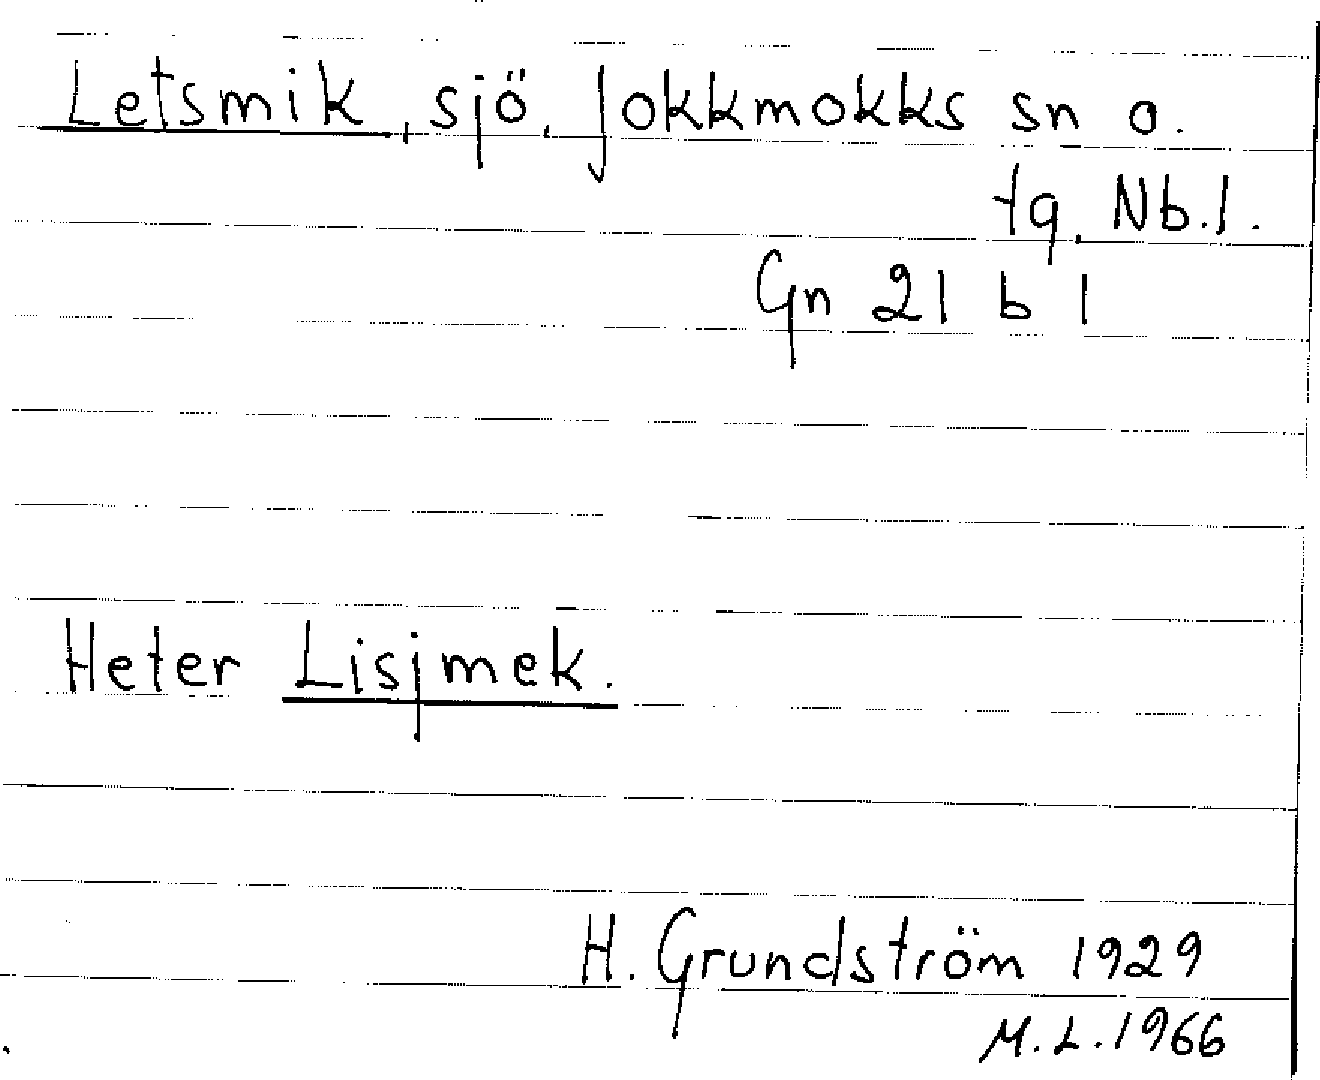 Letsmik, sjö, Jokkmokks sn o.
tg, Nb.l.
Gn 21 b 1
Heter Lisjmek.
H. Grundström 1929
M.L. 1966